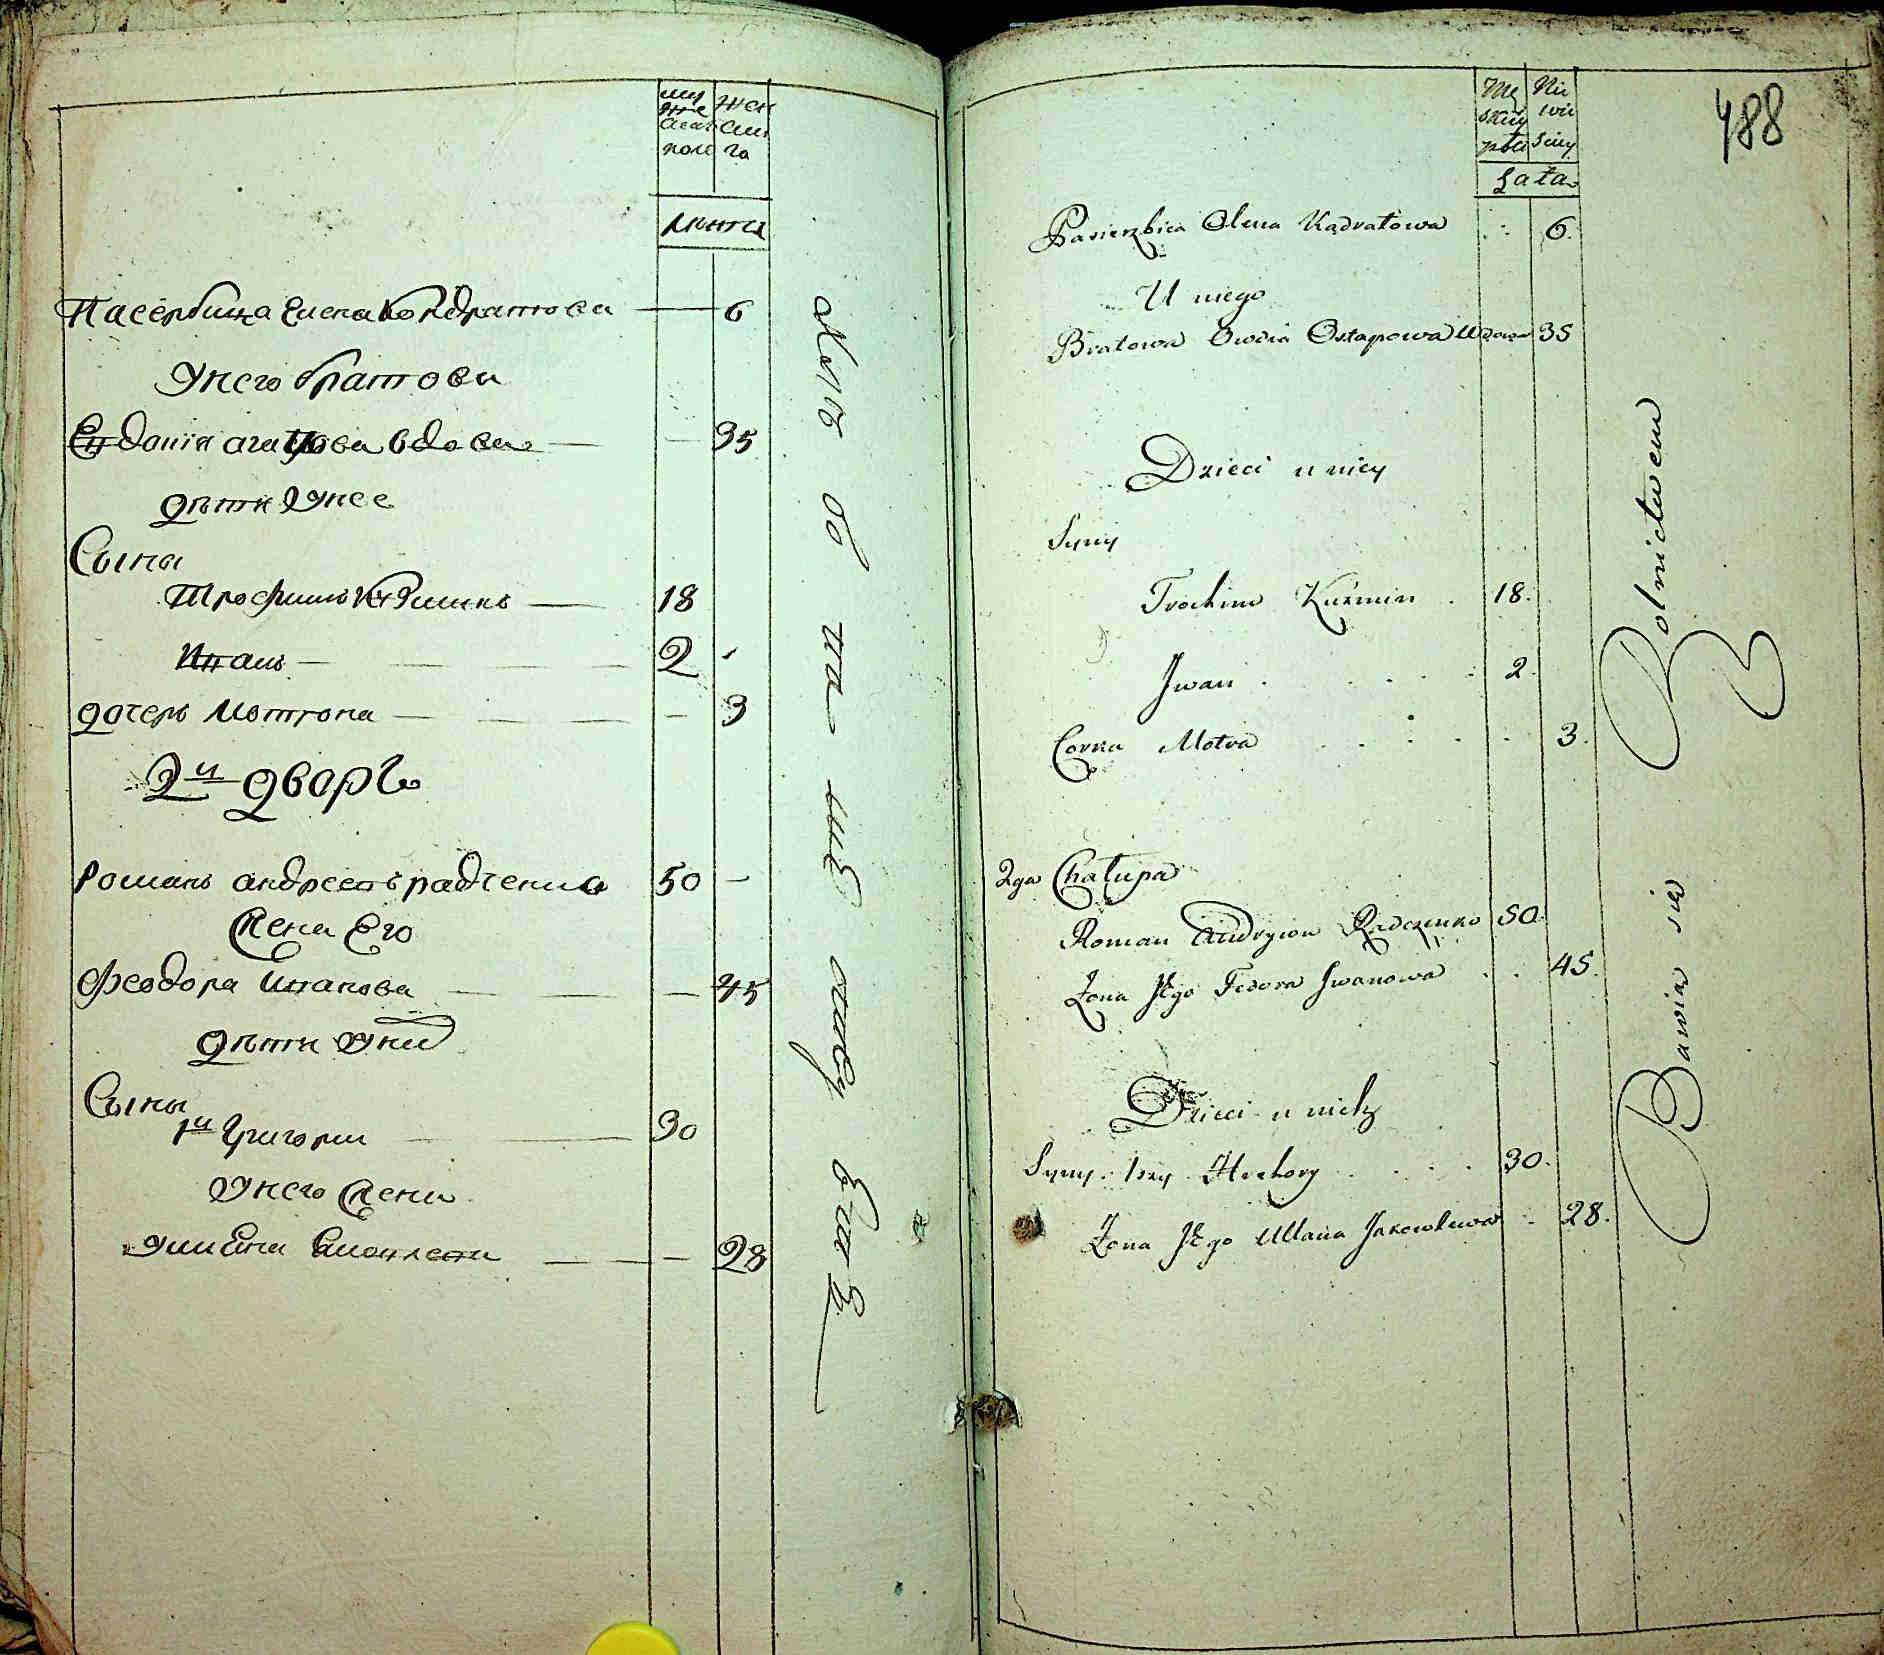 муже жен
скаго скаго
пола
лѣта
Пасербица Елена Кондратова 6
У него братова
Евдокія вдова 35
дѣти у нее
Сыны
Трофимъ 18
Иванъ 2
дочерь Мотрона 3
2й дворъ
Романъ андреевъ радченко 50
жена Его
Феодора иванова 45
дѣти у них
Сыны
1й Григорий 30
У него жена
28
Męzkiey Niewiesciey
płci
Lata
Pasierzbica Olena Kądratowa 6.
U niego
Bratowa Owdia Ostapowa Wdowa 35
Dzieci u niey
Syny
Trochim Kuzmin 18.
Jwan 2
Corka Motra 3.
2ga Chałupa
Roman Andrzeiow Radczenko 50.
Zona Jego Fedora Jwanowa 45.
Dzieci u nich
Syny 1szy Hrehory 30.
Zona Jego Ullana Jakowlewa 28.
Bawią się Rolnictwem
488